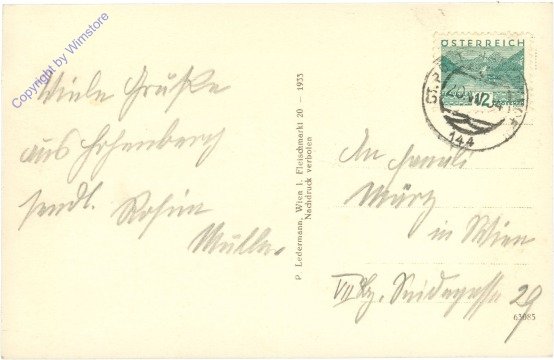 Copyright by Wimstore
Viele Grüße
aus Hohenberg
sendl. Rosina
Müller.
P. Ledermann, Wien I. Fleischmarkt 20 — 1933
Nachdruck verboten
ÖSTERREICH
12
144
An
März
in Wien
VII Bz. Seidengasse 29
63085